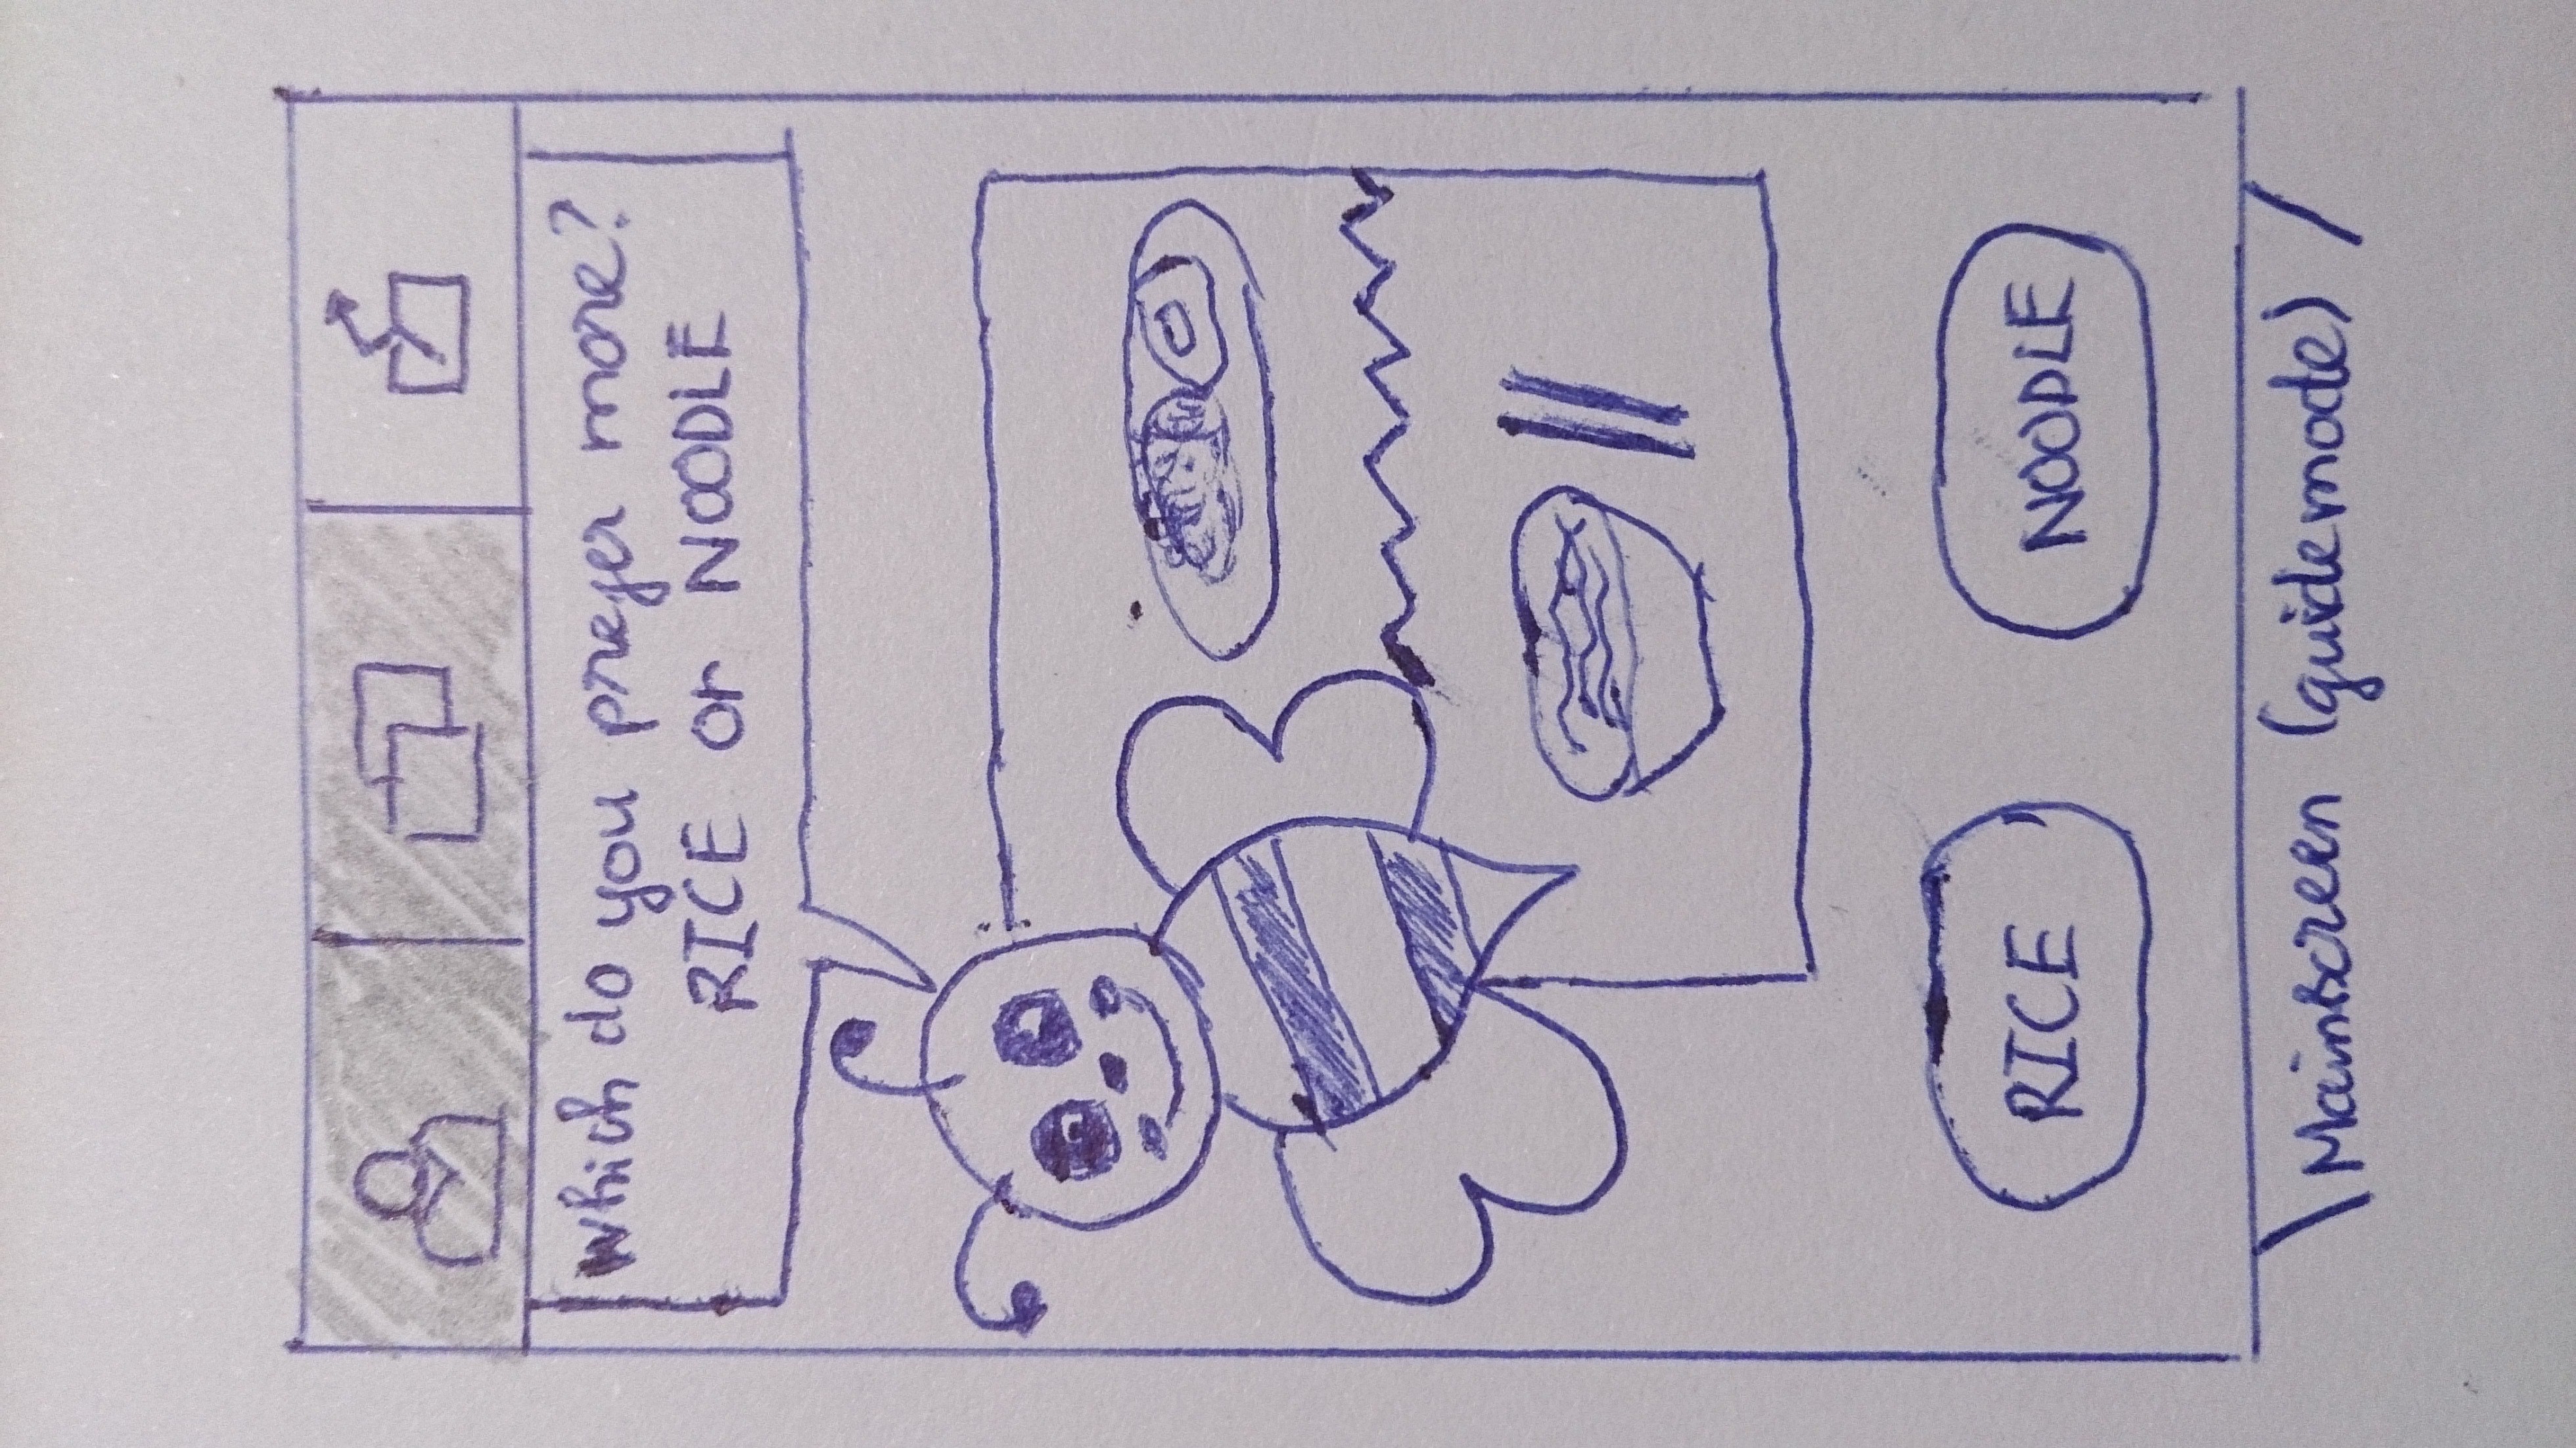 Which do you prefer more?
RICE or NOODLE
RICE NOODLE
Mainscreen (guidemode)